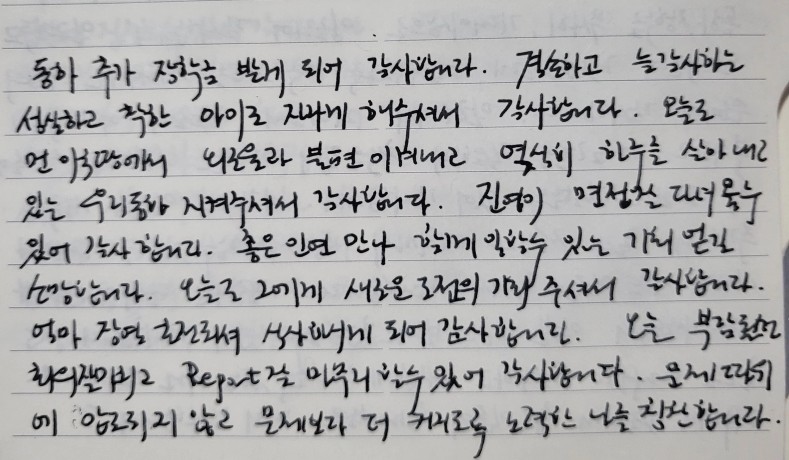 동하 추가 장학금 받게 되어 감사합니다. 겸손하고 늘감사하는
성실하고 착한 아이로 자라게 해주셔서 감사합니다. 오늘도
먼 이국땅에서 외로움과 불편 이겨내고 열심히 하루를 살아내고
있는 우리동하 지켜주셔서 감사합니다. 진영이 면접잘 다녀올수
있어 감사합니다. 좋은 인연 만나 함께 일할수 있는 기회 얻길
소망합니다. 오늘도 그에게 새로운 도전의 기회 주셔서 감사합니다.
엄마 장염 호전되셔 식사하시게 되어 감사합니다. 오늘
회의준비하고 Report 잘 마무리 할수 있어 감사합니다. 문제 따위
에 압도되지 않고 문제보다 더 커지도록 노력한 나를 칭찬합니다.